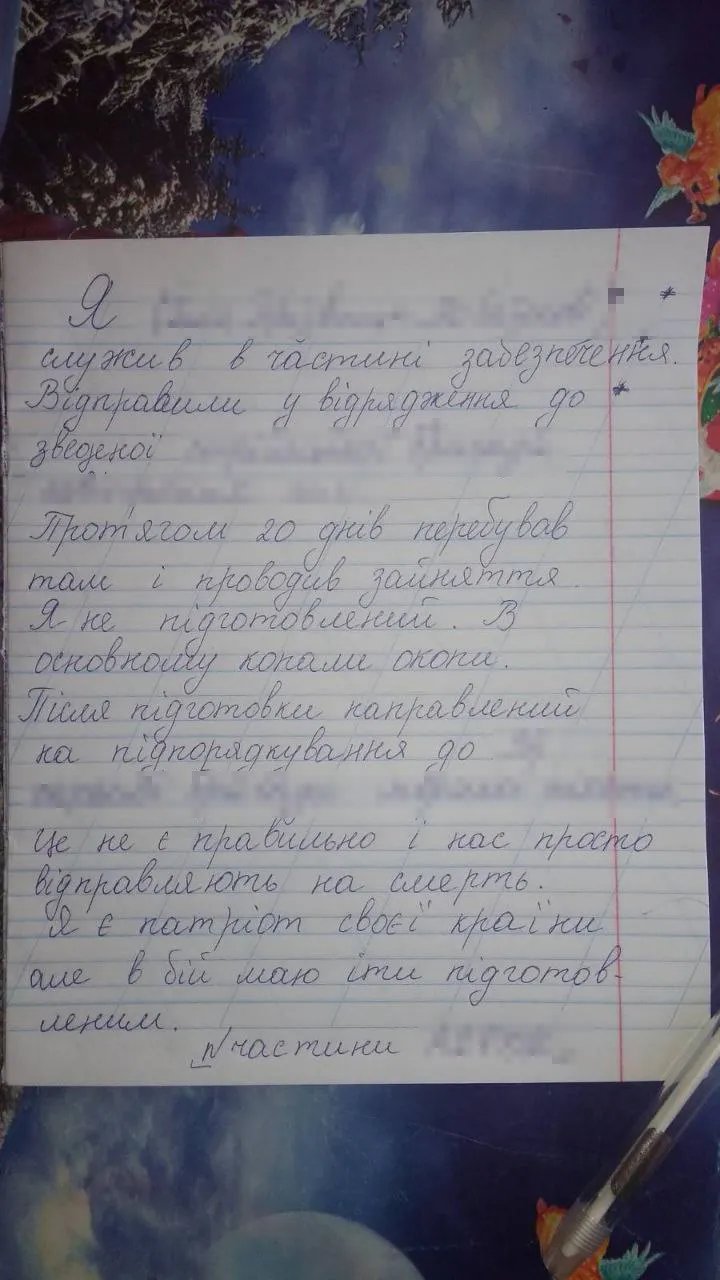 Я
служив в частині забезпечення.
Відправили у відрядження до
зведеної
Протягом 20 днів перебував
там і проводив зайняття.
Я не підготовлений. В
основному копали окопи.
Після підготовки направлений
на підпорядкування до
Це не є правильно і нас просто
відправляють на смерть.
Я є патріот своєї країни
але в бій маю іти підготов-
леним.
№ частини